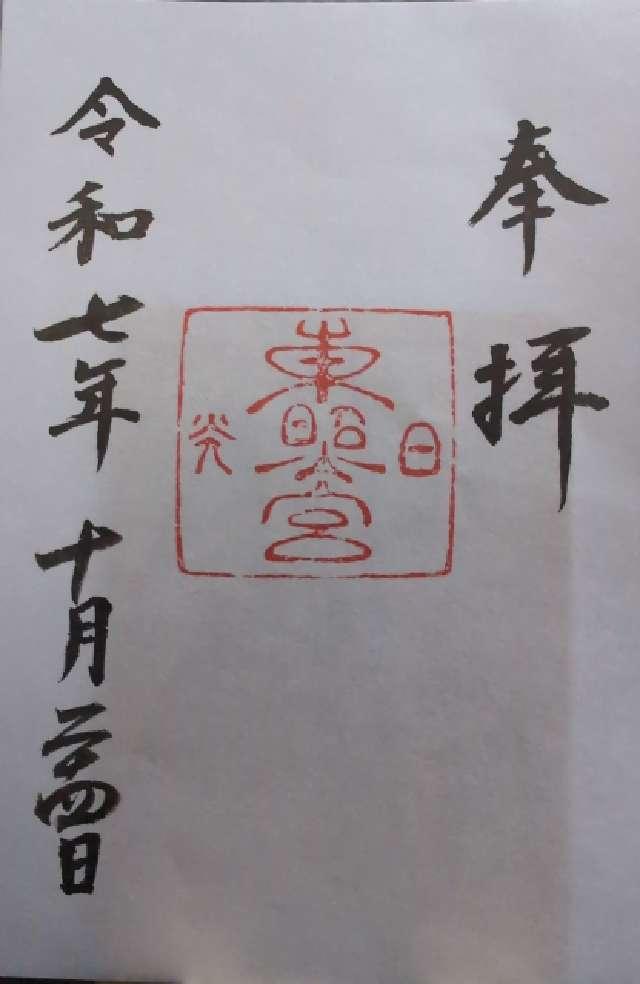 奉拝
日光
東照宮
令和七年十月二十四日